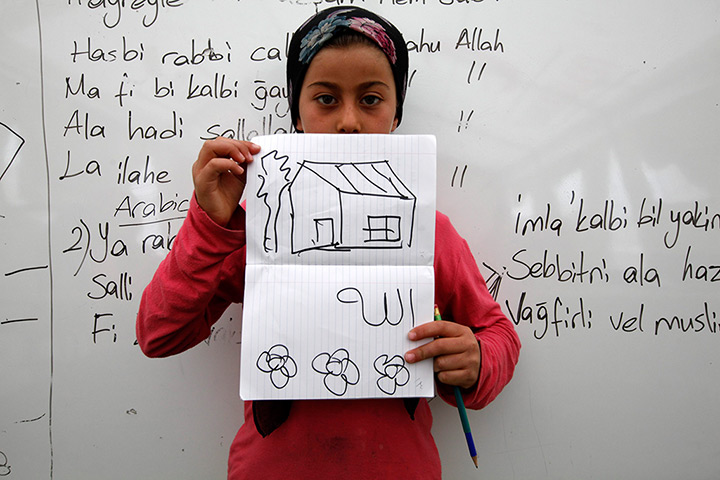 Hasbi rabbi cal ahu Allah
Ma fî bi kalbi ğay // //
Ala hadi sallall //
La ilahe //
Arabic
2) Ya rab
Salli
Fi
İmla 'kalbi bil yakin
Sebbitni ala haz
Vağfirli vel muslim
الله